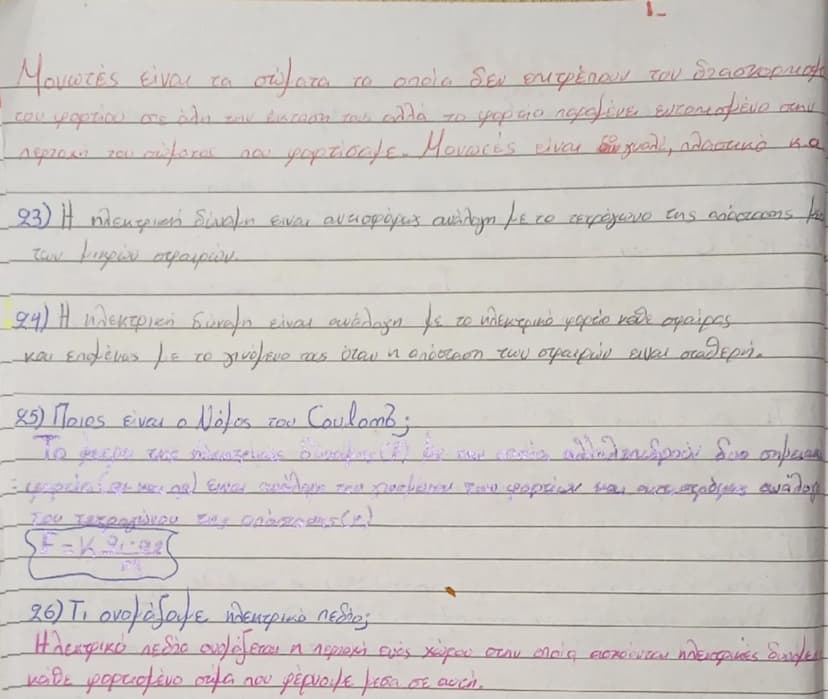 1-
Μονωτές είναι τα σώματα τα οποία δεν επιτρέπουν τον διασκορπισμό
του φορτίου σε όλη την έκταση τους αλλά το φορτίο παραμένει εντοπισμένο στην
περιοχή του σώματος που φορτίσαμε. Μονωτές είναι γυαλί, πλαστικό κ.α
23) Η ηλεκτρική δύναμη είναι αντιστρόφως ανάλογη με το τετράγωνο της απόστασης
των μικρών σφαιρών.
24) Η ηλεκτρική δύναμη είναι ανάλογη με το ηλεκτρικό φορτίο κάθε σφαίρας
και επομένως με το γινόμενο τας όταν η απόσταση των σφαιρών είναι σταθερή.
25) Ποιος είναι ο Νόμος του Coulomb;
Το μέτρο της ηλεκτρικής δύναμης (F) με την οποία αλληλεπιδρούν δυο σημειακά
φορτία (q1 και q2) είναι ανάλογη του γινομένου των φορτίων και αντιστρόφως ανάλογη
του τετραγώνου της απόστασης (r)
F = K q1·q2
r²
26) Τι ονομάζουμε ηλεκτρικό πεδίο;
Ηλεκτρικό πεδίο ονομάζεται η περιοχή ενός χώρου στην οποία ασκούνται ηλεκτρικές δυνάμεις
κάθε φορτισμένο σώμα που φέρνουμε μέσα σε αυτή.